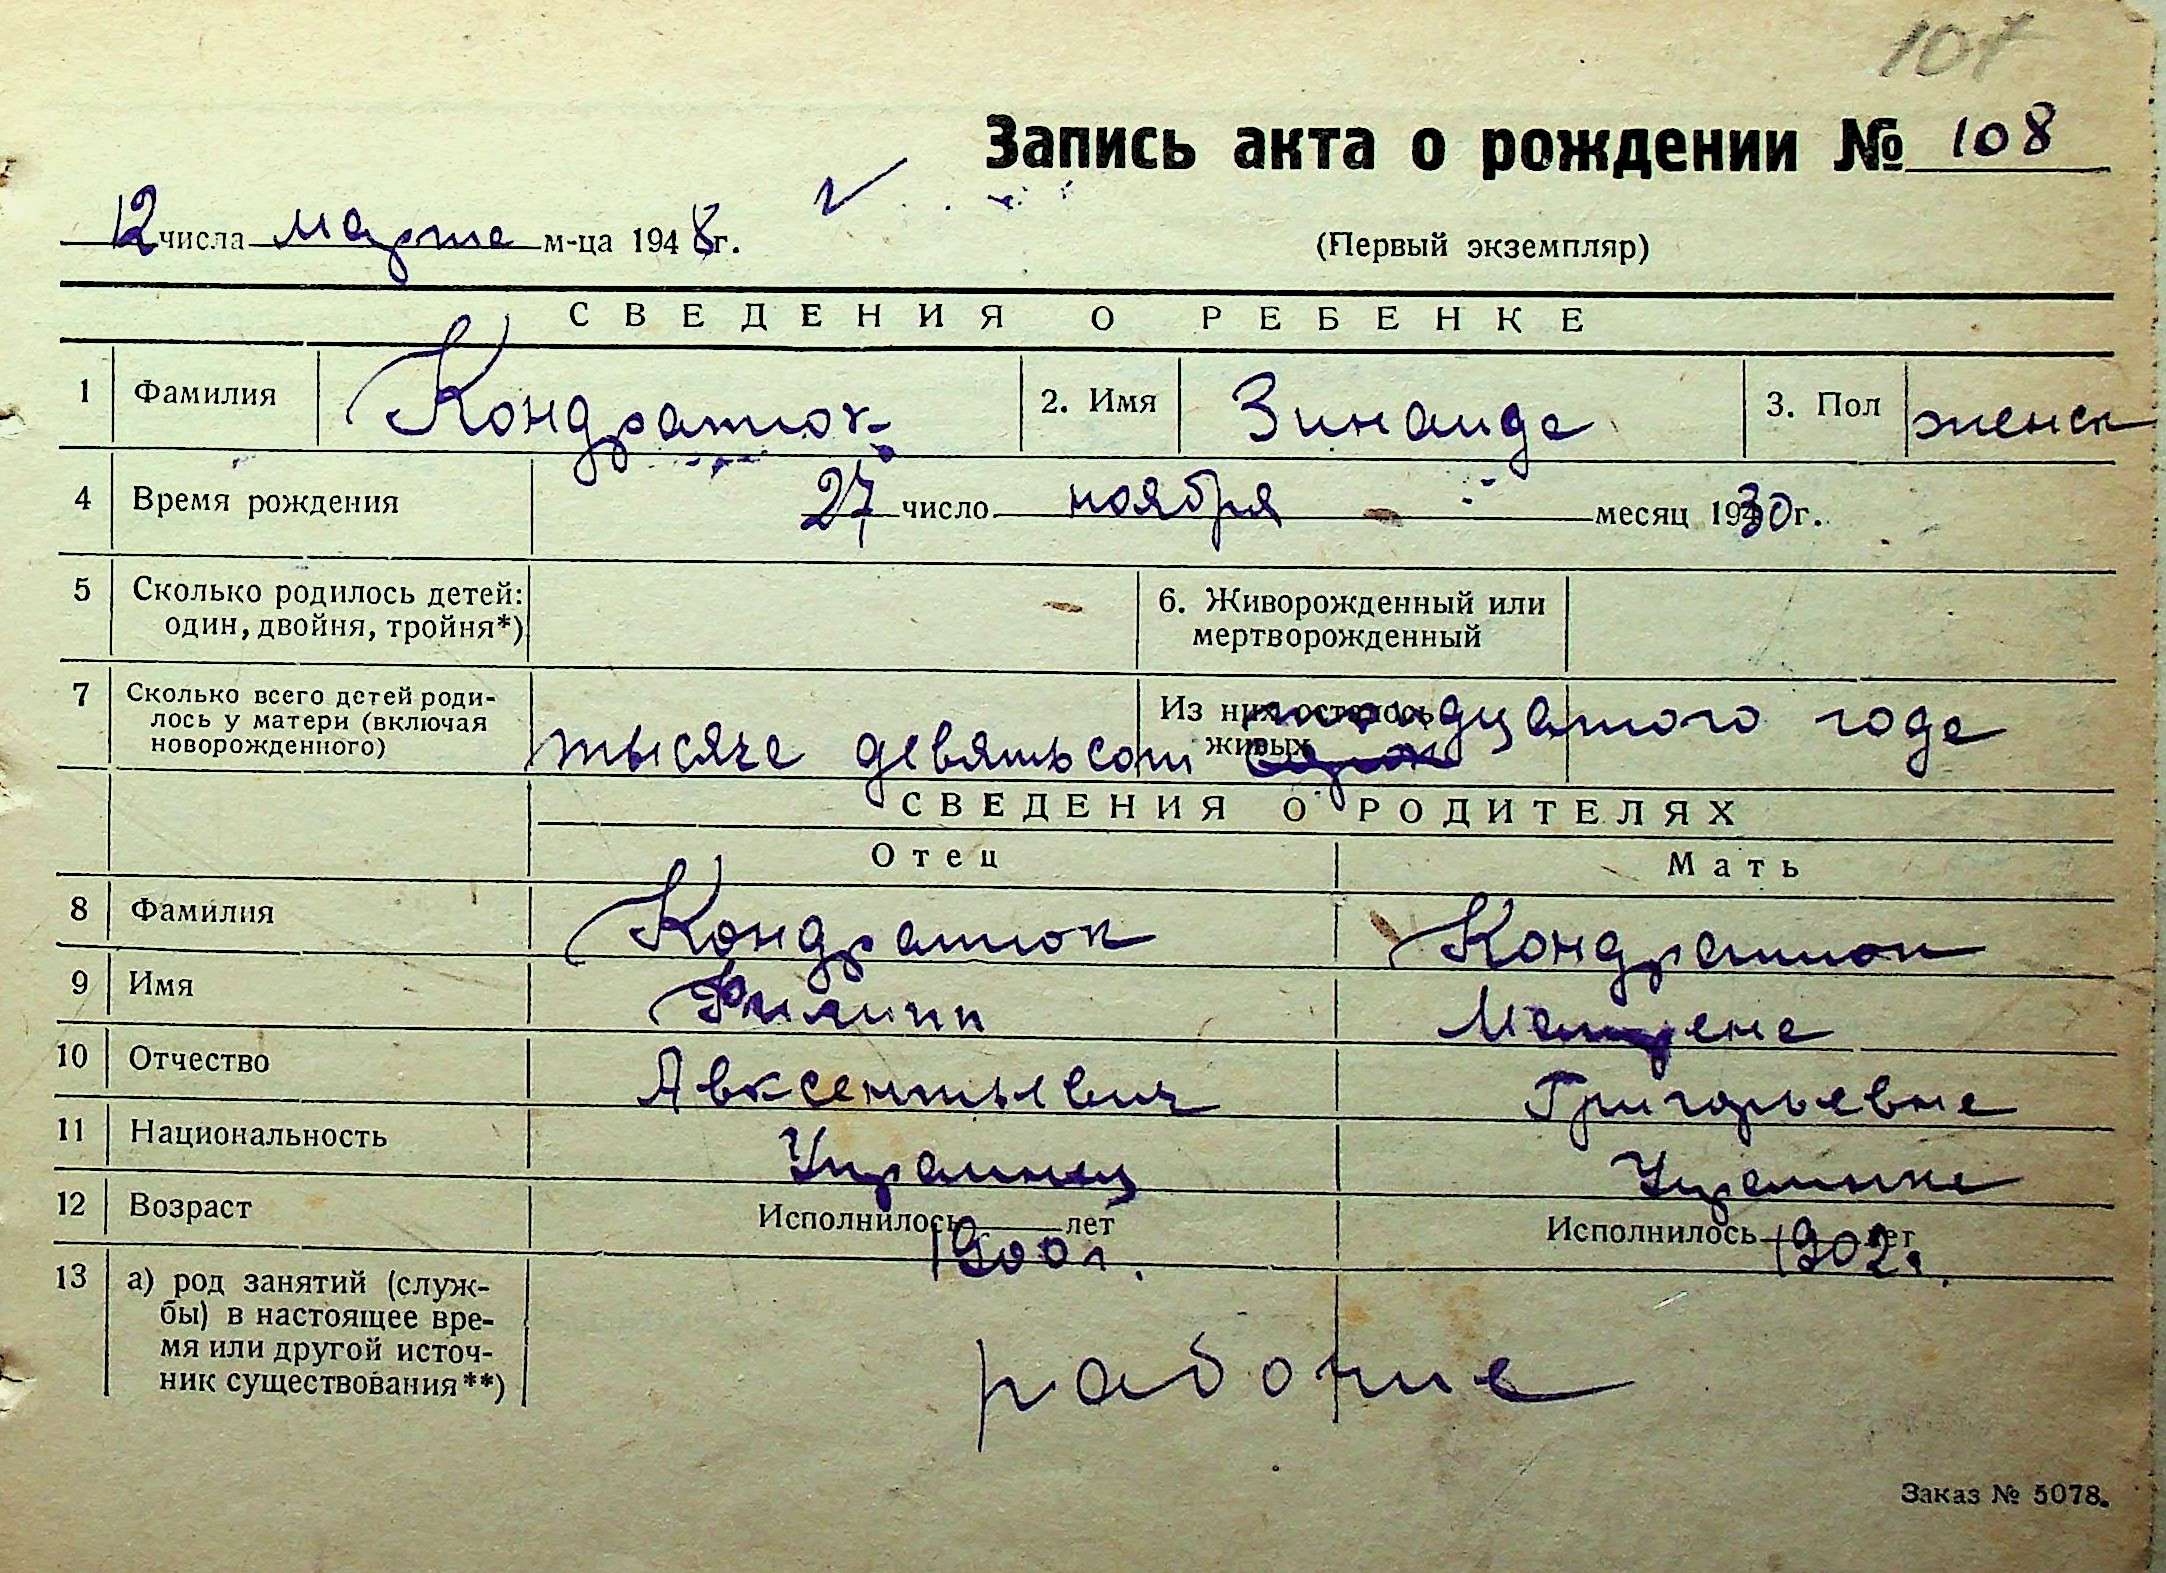 107
Запись акта о рождении № 108
12 числа марта м-ца 1948 г.
(Первый экземпляр)
СВЕДЕНИЯ О РЕБЕНКЕ
1 Фамилия Кондратюк 2. Имя Зинаида 3. Пол женск
4 Время рождения 27 число ноября месяц 1930 г.
5 Сколько родилось детей: один, двойня, тройня*) 6. Живорожденный или мертворожденный
7 Сколько всего детей роди-
лось у матери (включая
новорожденного) Из них осталось
живых
тысяча девятьсот тридцатого года
СВЕДЕНИЯ О РОДИТЕЛЯХ
Отец Мать
8 Фамилия Кондратюк Кондратюк
9 Имя Филипп Матрена
10 Отчество Авксентьевич Григорьевна
11 Национальность Украинец Украинка
12 Возраст Исполнилось лет Исполнилось лет
1900 г. 1902 г.
13 а) род занятий (служ-
бы) в настоящее вре-
мя или другой источ-
ник существования**)
рабочие
Заказ № 5078.